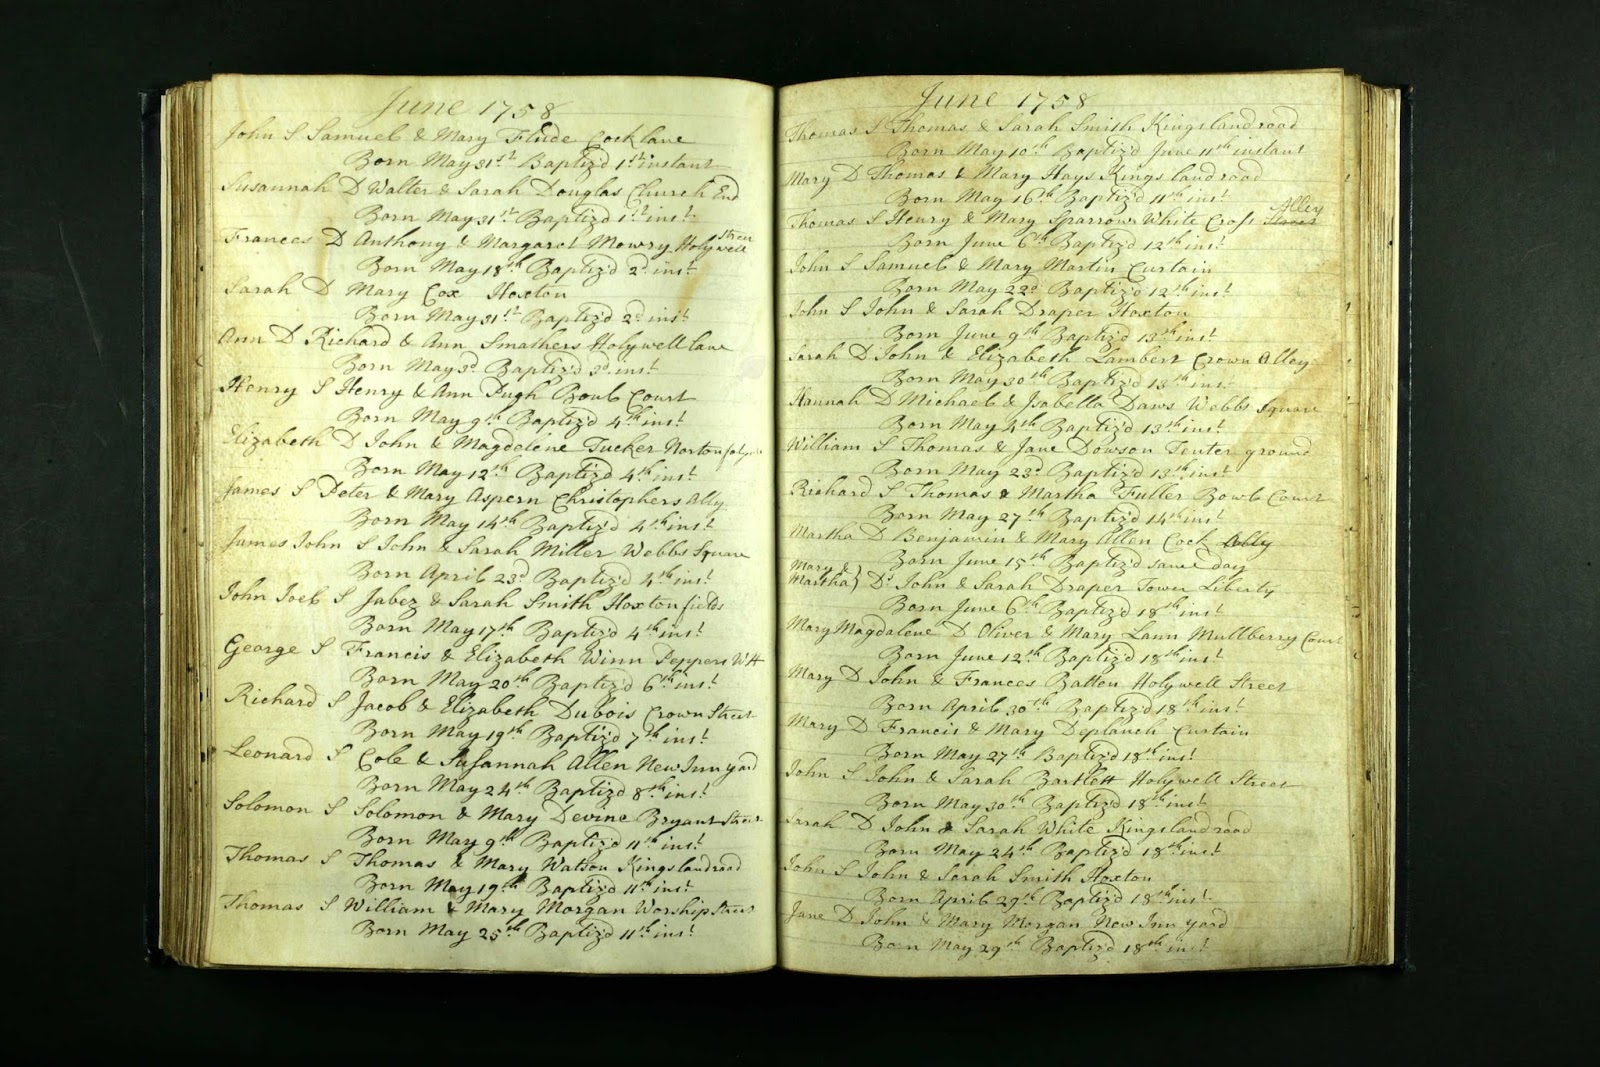 June 1758
John S Samuel & Mary Flude Cock lane
Born May 31st Baptiz'd 1st instant
Susannah D Walter & Sarah Douglas Church End
Born May 31st Baptiz'd 1st inst
Street
Frances D Anthony & Margaret Mowry Holywell
Born May 18th Baptiz'd 2d inst
Sarah D Mary Cox Hoxton
Born May 31st Baptiz'd 2d inst
Ann D Richard & Ann Smathers Holywell lane
Born May 3d Baptiz'd 3d inst
Henry S Henry & Ann Pugh Bowl Court
Born May 9th Baptiz'd 4th inst
Elizabeth D John & Magdelene Tucker Norton
Born May 12th Baptiz'd 4th inst
James S Peter & Mary Aspern Christophers Ally
Born May 14th Baptiz'd 4th inst
James John S John & Sarah Miller Webbs Square
Born April 23d Baptiz'd 4th inst
John Joel S Jabez & Sarah Smith Hoxton fields
Born May 17th Baptiz'd 4th inst
George S Francis & Elizabeth Winn Peppers
Born May 20th Baptiz'd 6th inst
Richard S Jacob & Elizabeth Dubois Crown Street
Born May 19th Baptiz'd 7th inst
Leonard S Cole & Susannah Allen New Inn yard
Born May 24th Baptiz'd 8th inst
Solomon S Solomon & Mary Devine Bryant Street
Born May 9th Baptiz'd 11th inst
Thomas S Thomas & Mary Watson Kingsland road
Born May 19th Baptiz'd 11th inst
Thomas S William & Mary Morgan Worship Street
Born May 25th Baptiz'd 11th inst
June 1758
Thomas S Thomas & Sarah Smith Kingsland road
Born May 10th Baptiz'd June 11th instant
Mary D Thomas & Mary Hays Kingsland road
Born May 16th Baptiz'd 11th inst
Alley
Thomas S Henry & Mary Sparrow White Cross Street
Born June 6th Baptiz'd 12th inst
John S Samuel & Mary Martin Curtain
Born May 22d Baptiz'd 12th inst
John S John & Sarah Draper Hoxton
Born June 9th Baptiz'd 13th inst
Sarah D John & Elizabeth Lambert Crown Alley
Born May 30th Baptiz'd 13th inst
Hannah D Michael & Isabella Daws Webbs Square
Born May 4th Baptiz'd 13th inst
William S Thomas & Jane Dowson Tenter ground
Born May 23d Baptiz'd 13th inst
Richard S Thomas & Martha Fuller Bowl Court
Born May 27th Baptiz'd 14th inst
Martha D Benjamin & Mary Allen Cock Ally
Born June 15th Baptiz'd same day
Mary &
Martha } Ds John & Sarah Draper Tower Liberty
Born June 6th Baptiz'd 18th inst
Mary Magdalene D Oliver & Mary Lann Mullberry Court
Born June 12th Baptiz'd 18th inst
Mary D John & Frances Batten Holywell Street
Born April 30th Baptiz'd 18th inst
Mary D Francis & Mary Deplanch Curtain
Born May 27th Baptiz'd 18th inst
John S John & Sarah Bartlett Holywell Street
Born May 30th Baptiz'd 18th inst
Sarah D John & Sarah White Kingsland road
Born May 24th Baptiz'd 18th inst
John S John & Sarah Smith Hoxton
Born April 29th Baptiz'd 18th inst
Jane D John & Mary Morgan New Inn yard
Born May 29th Baptiz'd 18th inst